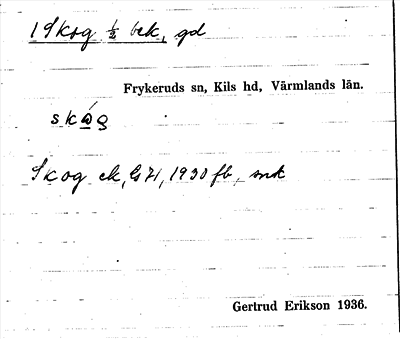 1 Skog ½ bek, gd
Frykeruds sn, Kils hd, Värmlands län.
skåg
Skog ek, G 71, 1930 fb, mk
Gertrud Erikson 1936.